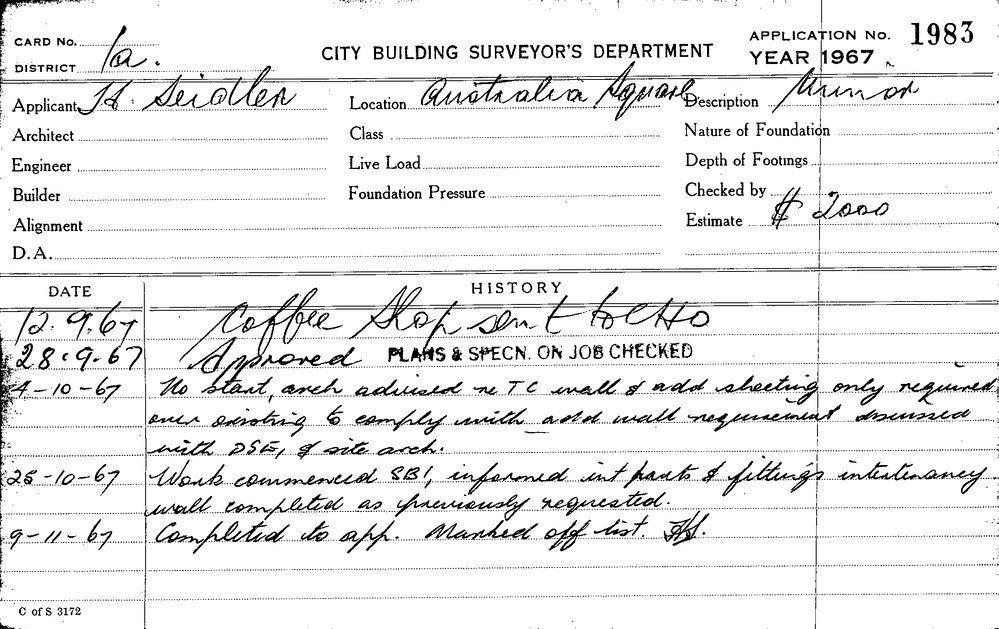 CARD No.
DISTRICT 1a.
CITY BUILDING SURVEYOR'S DEPARTMENT
APPLICATION No. 1983
YEAR 1967
Applicant H. Seidler
Location Australia Square
Description Minor
Architect
Class
Nature of Foundation
Engineer
Live Load
Depth of Footings
Builder
Foundation Pressure
Checked by
Alignment
Estimate $ 2000
D.A.
DATE
HISTORY
12.9.67 Coffee Shop sent to CHO
28.9.67 Approved PLANS & SPECN. ON JOB CHECKED
4-10-67 No start, arch advised re TC wall & add sheeting only required
over existing to comply with add wall requirement discussed
with DSE, & site arch.
25-10-67 Work commenced SB!, informed int parts & fittings intertenancy
wall completed as previously requested.
9-11-67 Completed to app. Marked off list.
C of S 3172